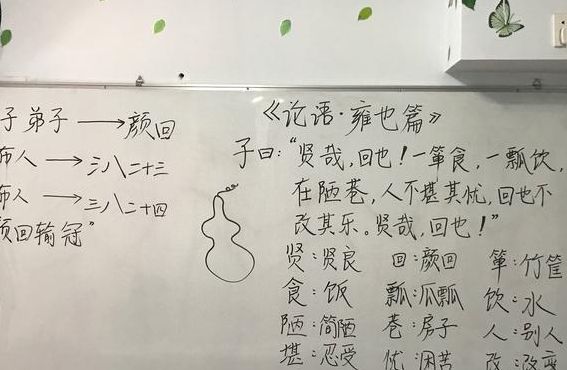 子弟子 → 颜回
布人 → 三八二十三
布人 → 三八二十四
颜回输冠"
《论语·雍也篇》
子曰:"贤哉,回也!一箪食,一瓢饮,
在陋巷,人不堪其忧,回也不
改其乐。贤哉,回也!"
贤:贤良 回:颜回 箪:竹筐
食:饭 瓢:瓜瓢 饮:水
陋:简陋 巷:房子 人:别人
堪:忍受 忧:困苦 改:改变